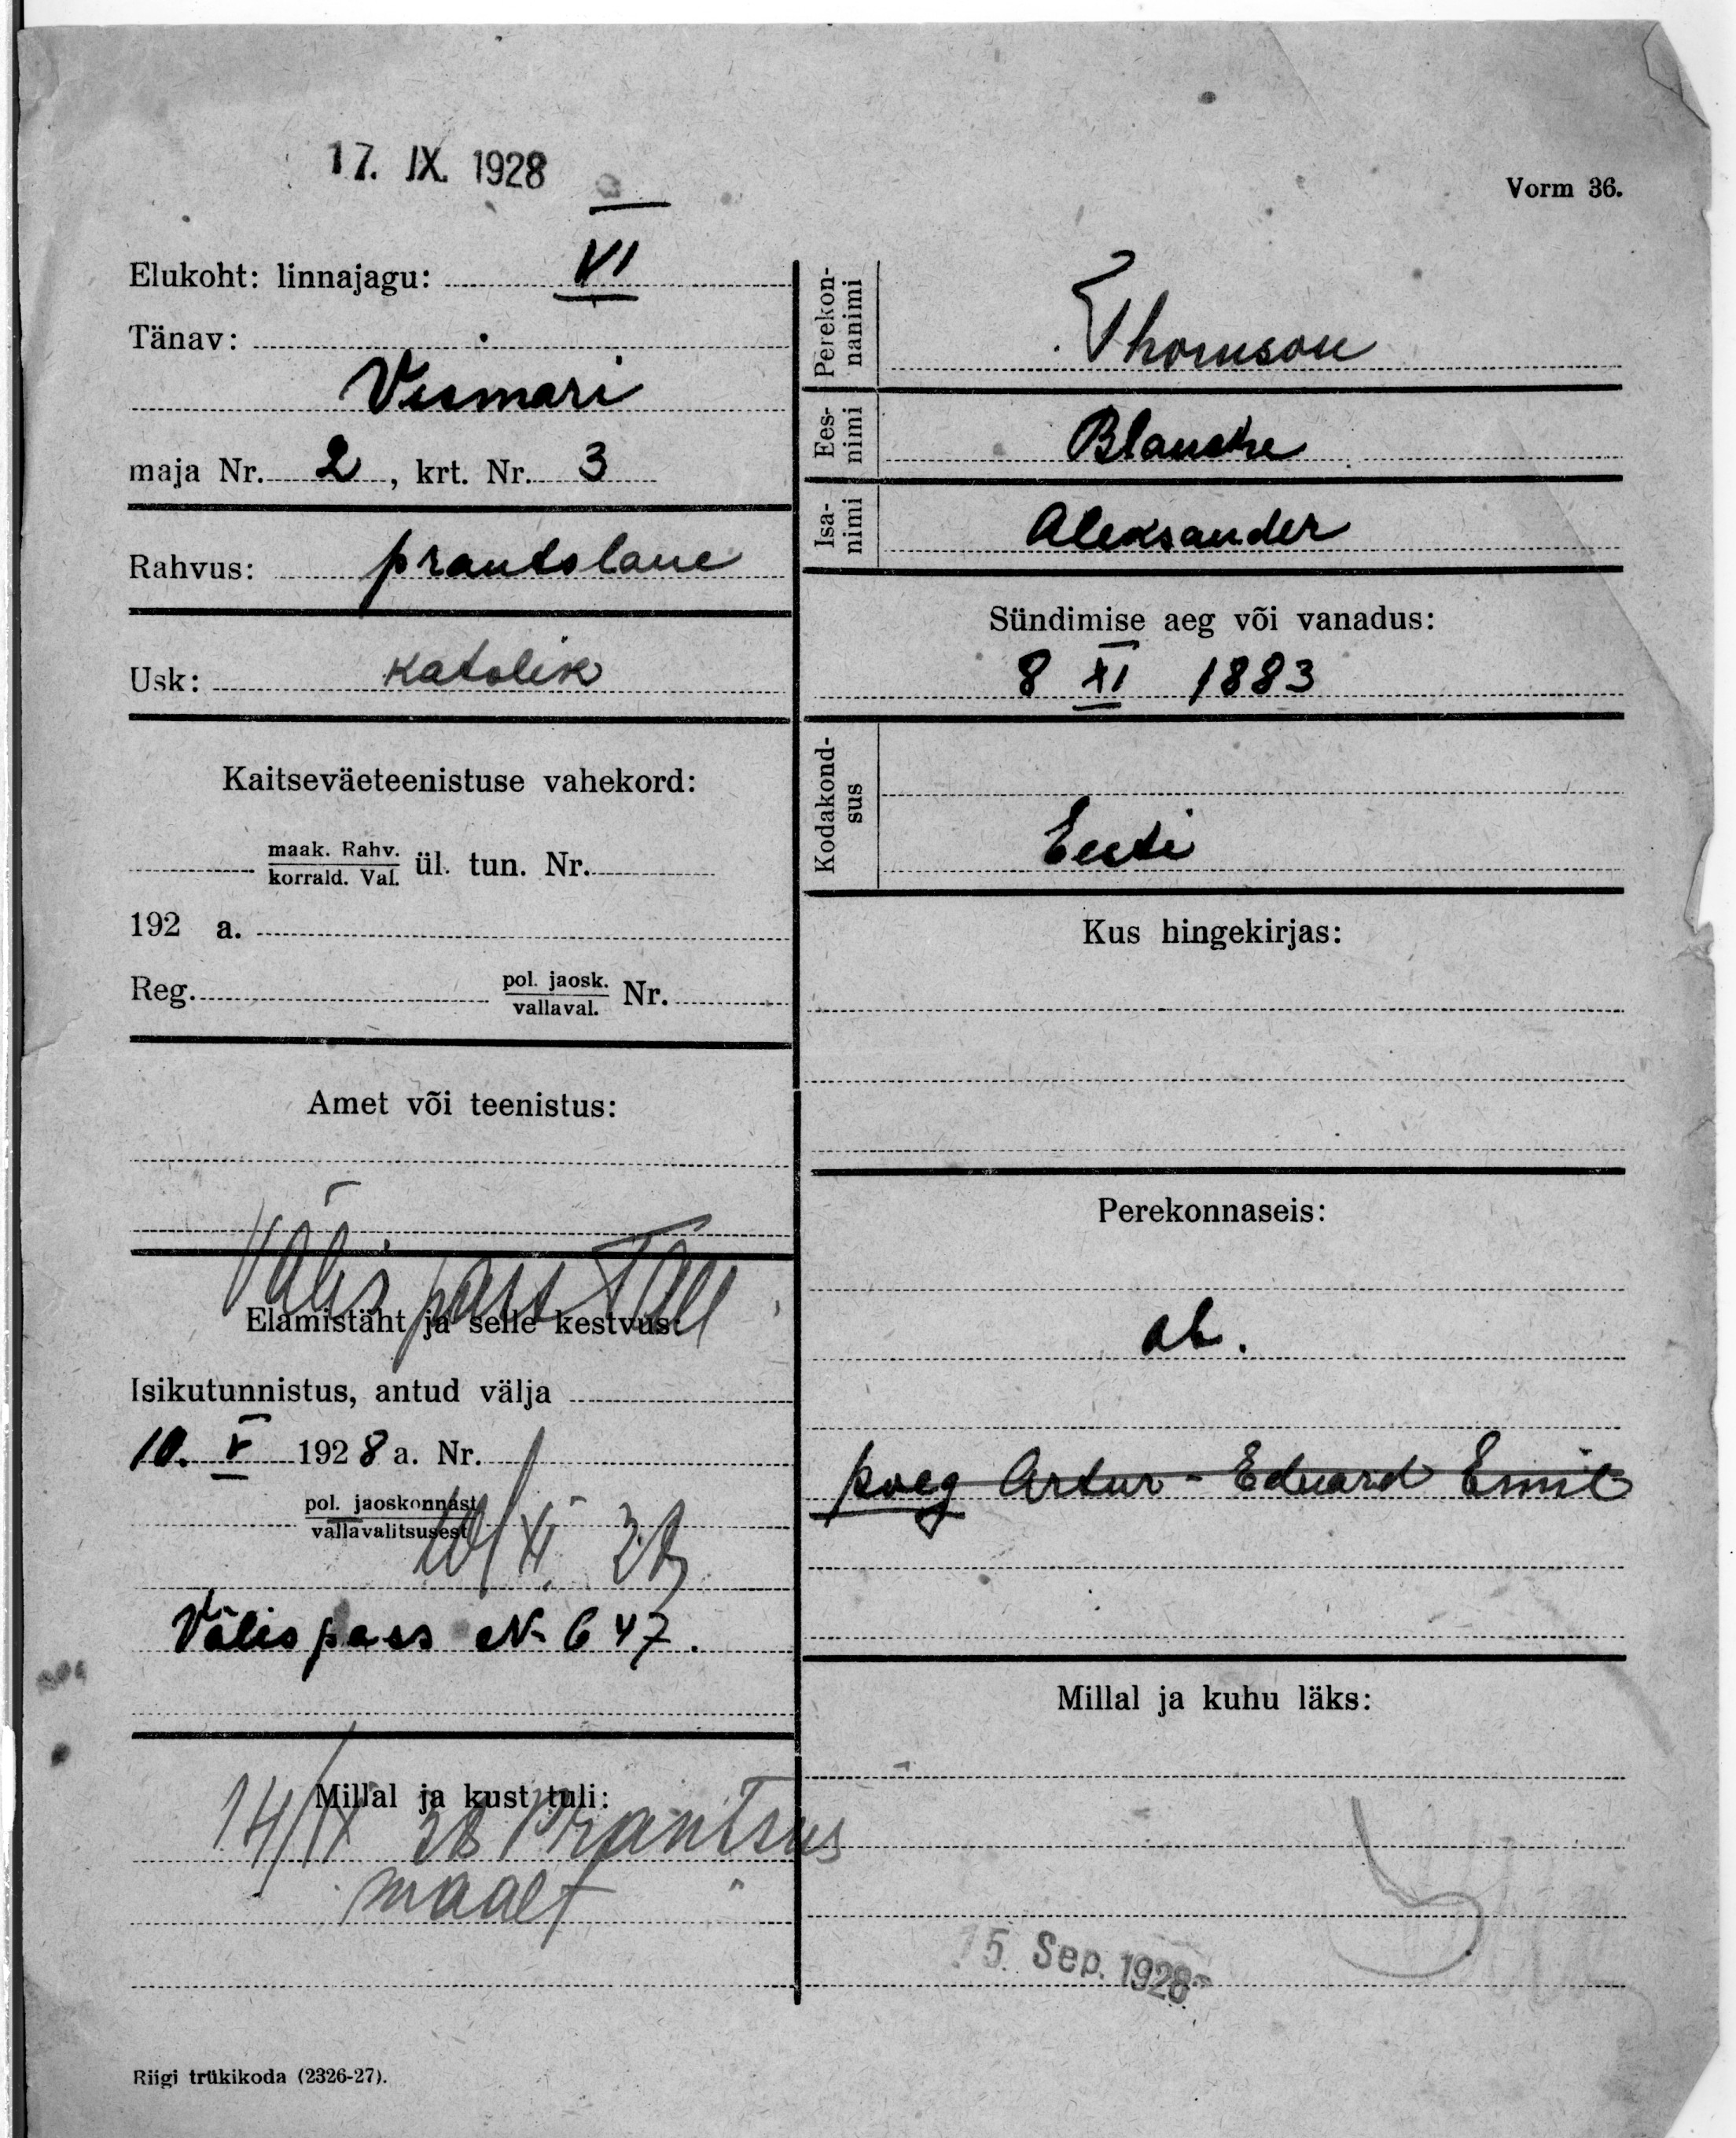 17. IX. 1928
Vorm 36.
Elukoht: linnajagu: VI
Tänav:
Vismari
maja Nr. 2, krt. Nr. 3
Rahvus: prantslane
Usk: katolik
Kaitseväeteenistuse vahekord:
maak. Rahv.
korrald. Val. ül. tun. Nr.
192 a.
Reg. pol. jaosk.
vallaval. Nr.
Amet või teenistus:
Välis pass Tall
Elamistäht ja selle kestvus:
Isikutunnistus, antud välja
10. V 1928 a. Nr.
pol. jaoskonnast
vallavalitsusest
Välispass N 647.
Millal ja kust tuli:
14/IX 28 Prantsus
maalt
Perekon-
nanimi
Thomson
Ees-
nimi
Blanche
Isa-
nimi
Aleksander
Sündimise aeg või vanadus:
8 XI 1883
Kodakond-
sus
Eesti
Kus hingekirjas:
Perekonnaseis:
ab.
poeg Artur-Eduard Emil
Millal ja kuhu läks:
15. Sep. 1928
Riigi trükikoda (2326-27).